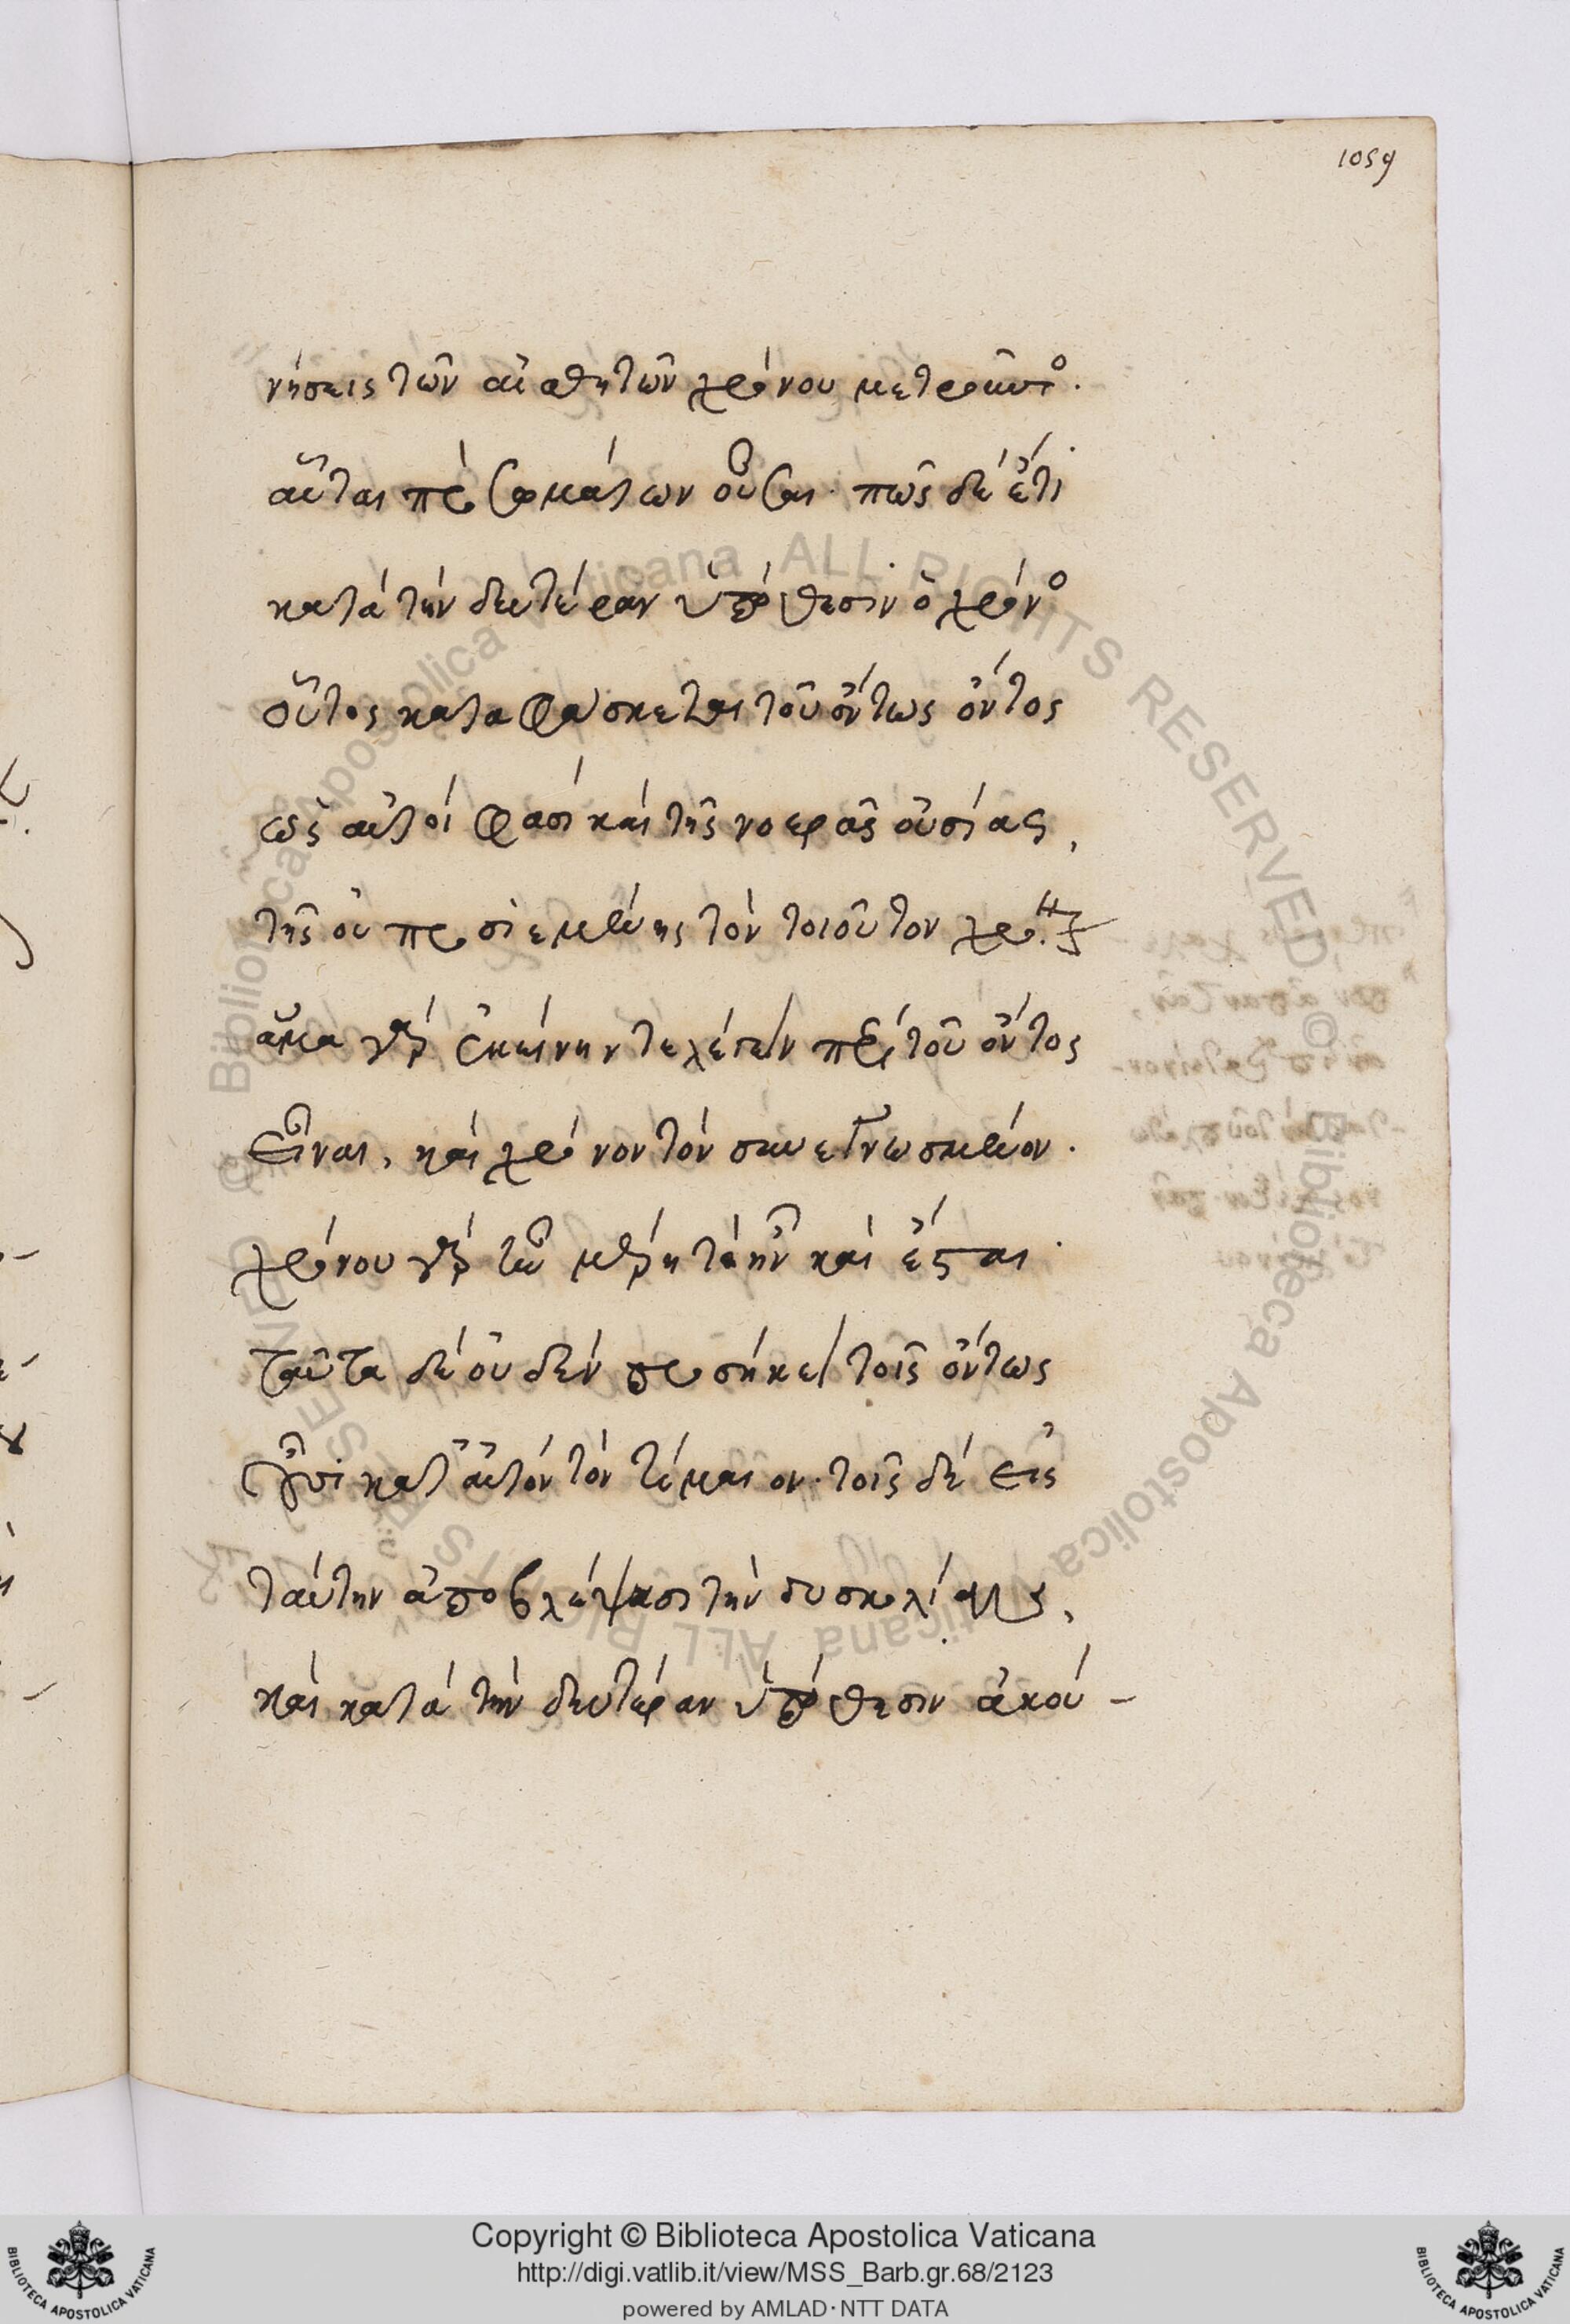 1059
νήσεις τῶν αἰσθητῶν χρόνου μετροῦντο.
αὗται πρὸ σωμάτων οὖσαι. πῶς δὲ ἔτι
κατὰ τὴν δευτέραν ὑπόθεσιν ὁ χρόνος
οὗτος καταφάσκεται τοῦ ὄντως ὄντος
ὡς αὐτοί φασι καὶ τῆς νοερᾶς οὐσίας,
τῆς οὐ προσιεμένης τὸν τοιοῦτον χρόνον
ἅμα γὰρ ἐκείνην τε λέγειν περὶ τοῦ ὄντος
εἶναι, καὶ χρόνον τὸν συνεγνωσμένον.
χρόνου γὰρ τοῦ μετρητὰ ἦν καὶ ἔσται.
ταῦτα δὲ οὐδὲν προσήκει τοῖς ὄντως
οὖσι κατ' αὐτὸν τὸν τίμαιον. τοῖς δὲ εἰς
ταύτην ἀποβλέψασι τὴν δυσκολίαν,
καὶ κατὰ τὴν δευτέραν ὑπόθεσιν ἀκού-
Copyright © Biblioteca Apostolica Vaticana
http://digi.vatlib.it/view/MSS_Barb.gr.68/2123
powered by AMLAD·NTT DATA